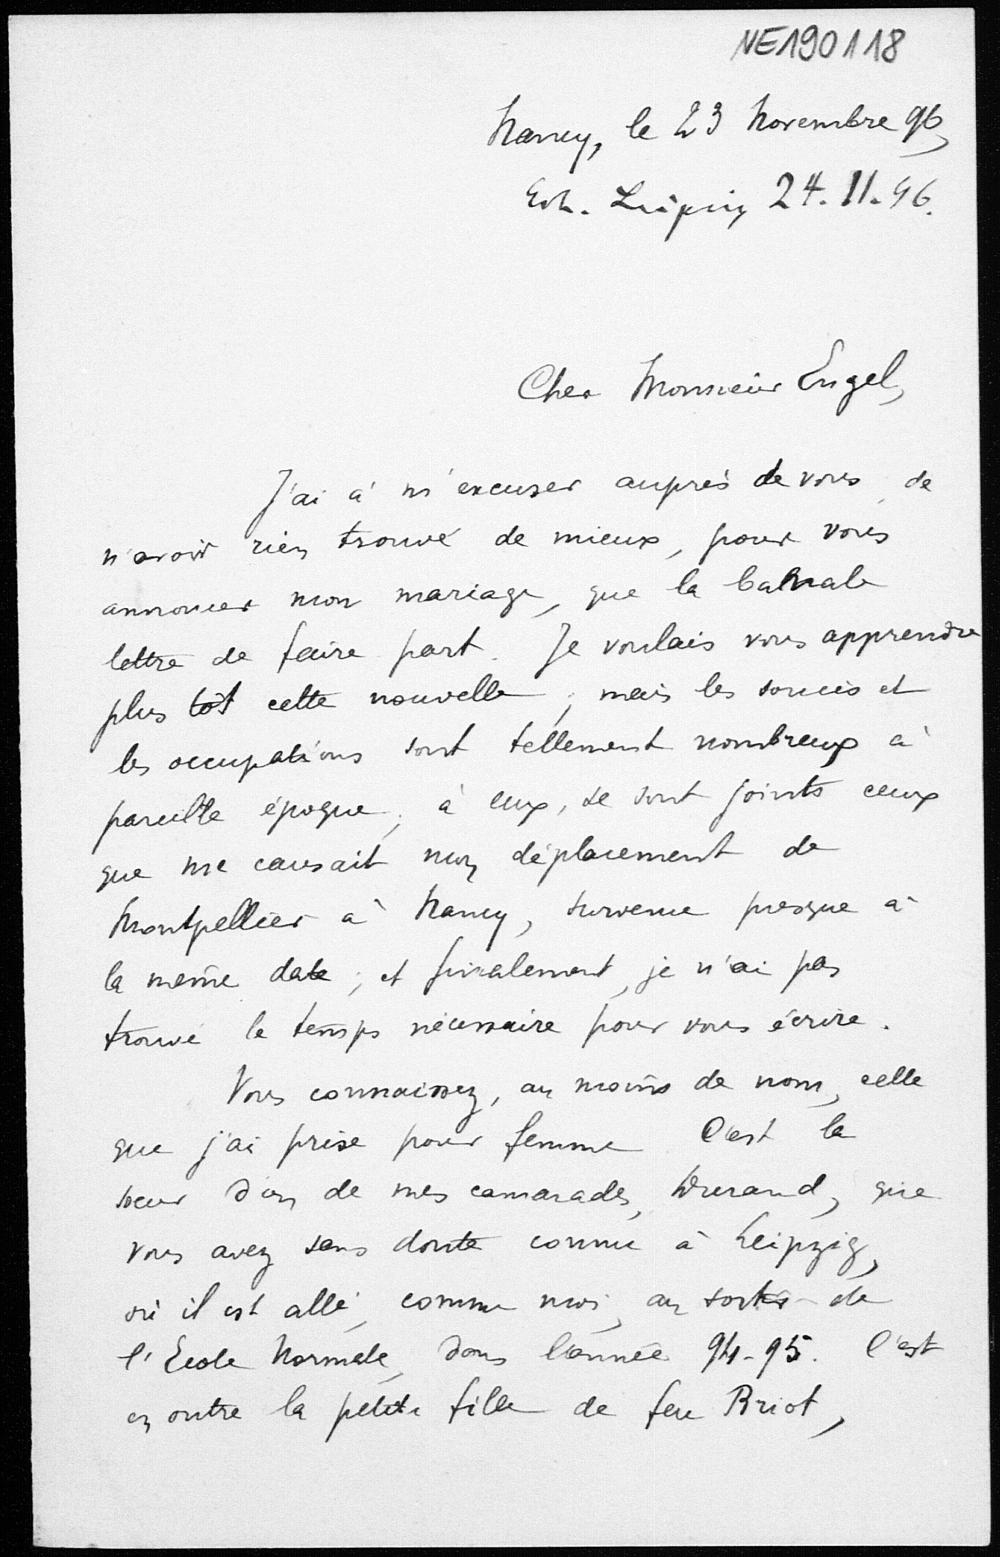 NE190118
Nancy, le 23 Novembre 96,
Erh. Leipzig 24. 11. 96.
Cher Monsieur Engel,
J'ai à m'excuser auprès de vous, de
n'avoir rien trouvé de mieux, pour vous
annoncer mon mariage, que la banale
lettre de faire part. Je voulais vous apprendre
plus tôt cette nouvelle ; mais les soucis et
les occupations sont tellement nombreux à
pareille époque ; à eux, se sont joints ceux
que me causait mon déplacement de
Montpellier à Nancy, survenu presque à
la même date ; et finalement, je n'ai pas
trouvé le temps nécessaire pour vous écrire.
Vous connaissez, au moins de nom, celle
que j'ai prise pour femme C'est la
sœur d'un de mes camarades, Durand, que
vous avez sans doute connu à Leipzig,
où il est allé, comme moi, au sortir de
l'Ecole Normale, dans l'année 94-95. C'est
en outre la petite fille de feu Briot,